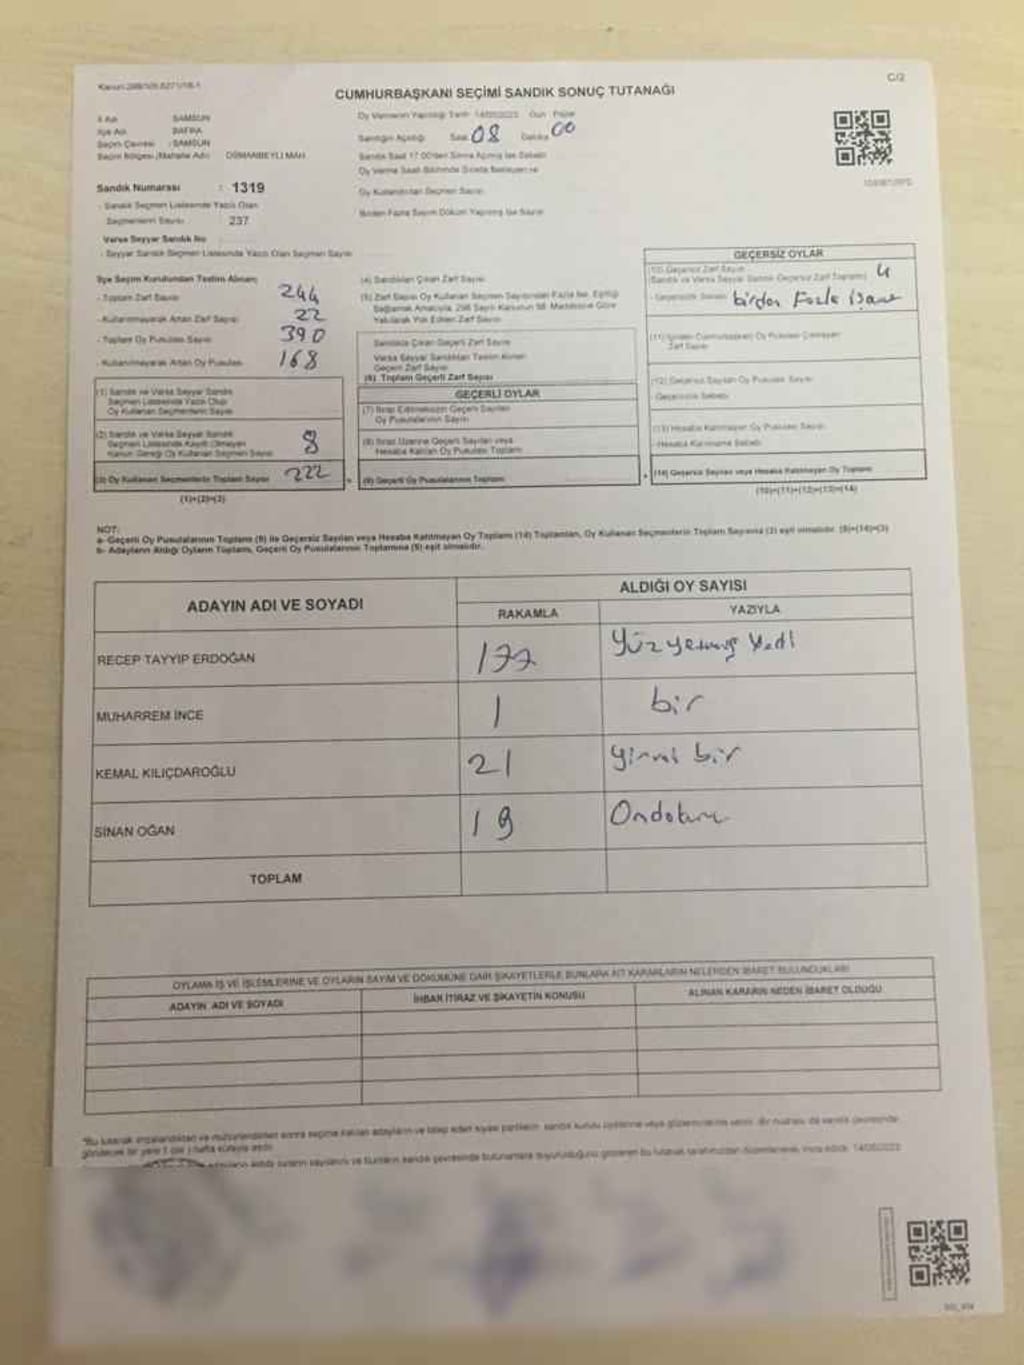 Kanun:298/105,6271/18-1
C/2
CUMHURBAŞKANI SEÇİMİ SANDIK SONUÇ TUTANAĞI
İl Adı SAMSUN
İlçe Adı BAFRA
Seçim Çevresi : SAMSUN
Seçim Bölgesi /Mahalle Adı: OSMANBEYLİ MAH
Oy Vermenin Yapıldığı Tarih 14/05/2023 Gün Pazar
Sandığın Açıldığı Saat 08 Dakika 00
Sandık Saat 17.00'den Sonra Açılmış İse Sebebi
Oy Verme Saati Bitiminde Sırada Bekleyen ve
Oy Kullandırılan Seçmen Sayısı
Birden Fazla Sayım Döküm Yapılmış İse Sayısı
Sandık Numarası : 1319
- Sandık Seçmen Listesinde Yazılı Olan
Seçmenlerin Sayısı 237
Varsa Seyyar Sandık No
- Seyyar Sandık Seçmen Listesinde Yazılı Olan Seçmen Sayısı
İlçe Seçim Kurulundan Teslim Alınan;
- Toplam Zarf Sayısı 244
- Kullanılmayarak Artan Zarf Sayısı 22
- Toplam Oy Pusulası Sayısı 390
- Kullanılmayarak Artan Oy Pusulası 168
(1) Sandık ve Varsa Seyyar Sandık
Seçmen Listesinde Yazılı Olup
Oy Kullanan Seçmenlerin Sayısı
(2) Sandık ve Varsa Seyyar Sandık
Seçmen Listesinde Kayıtlı Olmayan
Kanun Gereği Oy Kullanan Seçmen Sayısı 8
(3) Oy Kullanan Seçmenlerin Toplam Sayısı 222
(1)+(2)=(3)
(4) Sandıktan Çıkan Zarf Sayısı
(5) Zarf Sayısı Oy Kullanan Seçmen Sayısından Fazla İse, Eşitliği
Sağlamak Amacıyla, 298 Sayılı Kanunun 98. Maddesine Göre
Yakılarak Yok Edilen Zarf Sayısı
Sandıkta Çıkan Geçerli Zarf Sayısı
Varsa Seyyar Sandıktan Teslim Alınan
Geçerli Zarf Sayısı
(6) Toplam Geçerli Zarf Sayısı
GEÇERLİ OYLAR
(7) İtiraz Edilmeksizin Geçerli Sayılan
Oy Pusulalarının Sayısı
(8) İtiraz Üzerine Geçerli Sayılan veya
Hesaba Katılan Oy Pusulası Toplamı
(9) Geçerli Oy Pusulalarının Toplamı
GEÇERSİZ OYLAR
(10) Geçersiz Zarf Sayısı
(Sandık ve Varsa Seyyar Sandık Geçersiz Zarf Toplamı) 4
- Geçersizlik Sebebi birden Fazla
(11) İçinden Cumhurbaşkanı Oy Pusulası Çıkmayan
Zarf Sayısı
(12) Geçersiz Sayılan Oy Pusulası Sayısı
- Geçersizlik Sebebi
(13) Hesaba Katılmayan Oy Pusulası Sayısı
- Hesaba Katılmama Sebebi
(14) Geçersiz Sayılan veya Hesaba Katılmayan Oy Toplamı
(10)+(11)+(12)+(13)=(14)
NOT:
a- Geçerli Oy Pusulalarının Toplamı (9) ile Geçersiz Sayılan veya Hesaba Katılmayan Oy Toplamı (14) Toplamları, Oy Kullanan Seçmenlerin Toplam Sayısına (3) eşit olmalıdır. (9)+(14)=(3)
b- Adayların Aldığı Oyların Toplamı, Geçerli Oy Pusulalarının Toplamına (9) eşit olmalıdır.
ADAYIN ADI VE SOYADI
ALDIĞI OY SAYISI
RAKAMLA YAZIYLA
RECEP TAYYIP ERDOĞAN 177 yüzyetmiş yedi
MUHARREM İNCE 1 bir
KEMAL KILIÇDAROĞLU 21 yirmi bir
SİNAN OĞAN 19 Ondokuz
TOPLAM
OYLAMA İŞ VE İŞLEMLERİNE VE OYLARIN SAYIM VE DÖKÜMÜNE DAİR ŞİKAYETLERLE BUNLARA AİT KARARLARIN NELERDEN İBARET BULUNDUKLARI
ADAYIN ADI VE SOYADI
İHBAR İTİRAZ VE ŞİKAYETİN KONUSU
ALINAN KARARIN NEDEN İBARET OLDUĞU